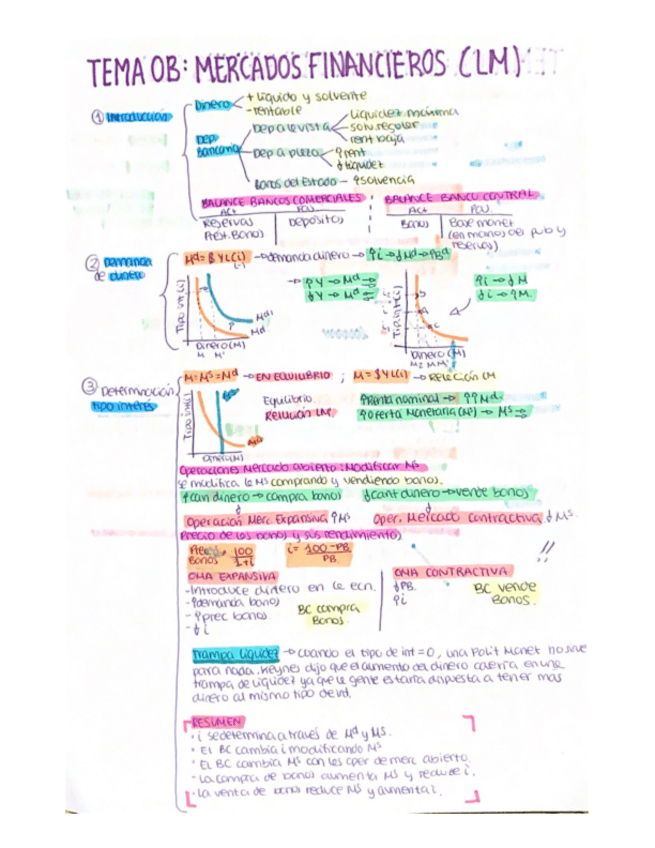 TEMA 0B: MERCADOS FINANCIEROS (LM)
① Introducción
Dinero
+ líquido y solvente
- rentable
Dep. Bancario
Dep a la vista
liquidez máxima
solv. regular
rent baja
Dep a plazo
↑ rent
↓ liquidez
Bonos del Estado - ↑ solvencia
BALANCE BANCOS COMERCIALES
BALANCE BANCO CENTRAL
Reservas
Prést. Bonos
Depósitos
Bonos
Base monet
(en manos del pub y
reservas)
② Demanda
de dinero
Md = $ Y L(i)
(-)
→ demanda dinero → ↑i → ↓Md → PBd
→ ↑Y → Md ↑
↓Y → Md
↑i → ↓M
↓i → ↑M.
Tipo int (i)
Md'
Md
Dinero (M)
M M'
Tipo int (i)
Dinero (M)
③ Determinación
tipo interés
M = Ms = Md → EN EQUILIBRIO ; M = $ Y L(i) → RELACIÓN LM
Tipo int (i)
Equilibrio
Relación LM.
↑Renta nominal → ↑↑Md.
↑Oferta Monetaria (Ms) → Ms →
Operaciones Mercado abierto: Modificar Ms
se modifica la Ms comprando y vendiendo bonos.
↑cant dinero → compra bonos
↓cant dinero → vende bonos
Operación Merc. Expansiva ↑Ms
Oper. Mercado contractiva ↓Ms.
Precio de los bonos y sus rendimientos
Bonos = 100 / 1+i
i = 100 - PB / PB.
!!
OMA EXPANSIVA
- Introduce dinero en la ecn.
- ↑demanda bonos
- ↑prec bonos.
- ↓i
BC compra
Bonos.
OMA CONTRACTIVA
↓PB.
↑i
BC vende
Bonos.
Trampa liquidez → cuando el tipo de int = 0, una Polít Monet no sirve
para nada. Keynes dijo que el aumento del dinero caería en una
trampa de liquidez ya que la gente estaría dispuesta a tener más
dinero al mismo tipo de int.
RESUMEN
· i se determina a través de Md y Ms.
· El BC cambia i modificando Ms
· EL BC cambia Ms con las oper de merc abierto.
· La compra de bonos aumenta Ms y reduce i.
· La venta de bono reduce Ms y aumenta i.